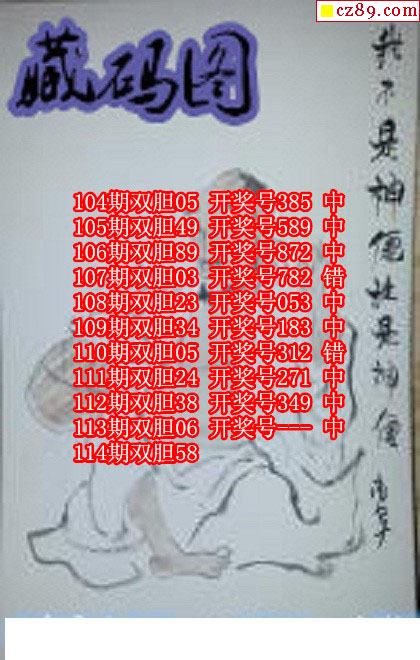 cz89.com
藏码图
104期双胆05 开奖号385 中
105期双胆49 开奖号589 中
106期双胆89 开奖号872 中
107期双胆03 开奖号782 错
108期双胆23 开奖号053 中
109期双胆34 开奖号183 中
110期双胆05 开奖号312 错
111期双胆24 开奖号271 中
112期双胆38 开奖号349 中
113期双胆06 开奖号--- 中
114期双胆58
我不是神仙 是神仙